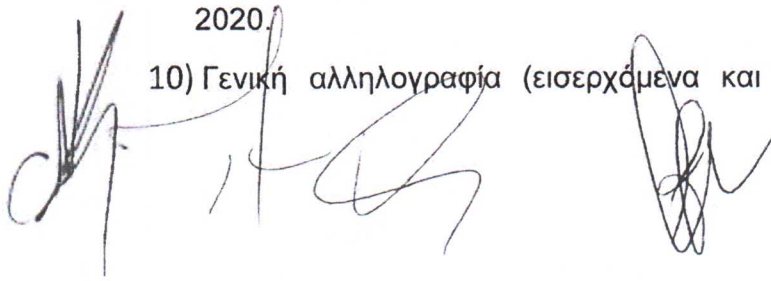 2020.
10) Γενική αλληλογραφία (εισερχόμενα και